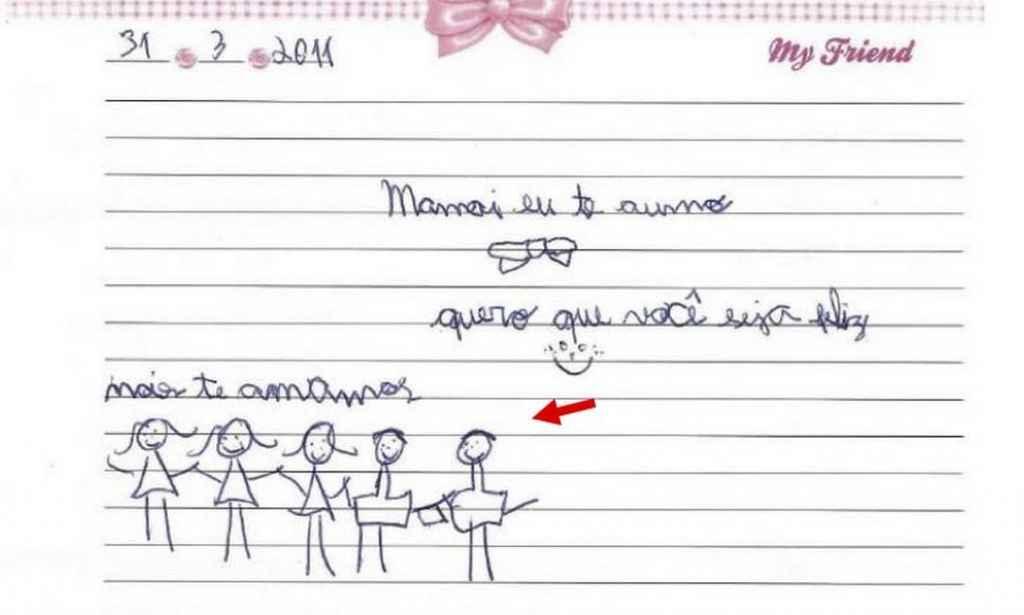 31 3 2011
My Friend
Mamai eu te aumo
quero que você seja feliz
nois te amamos